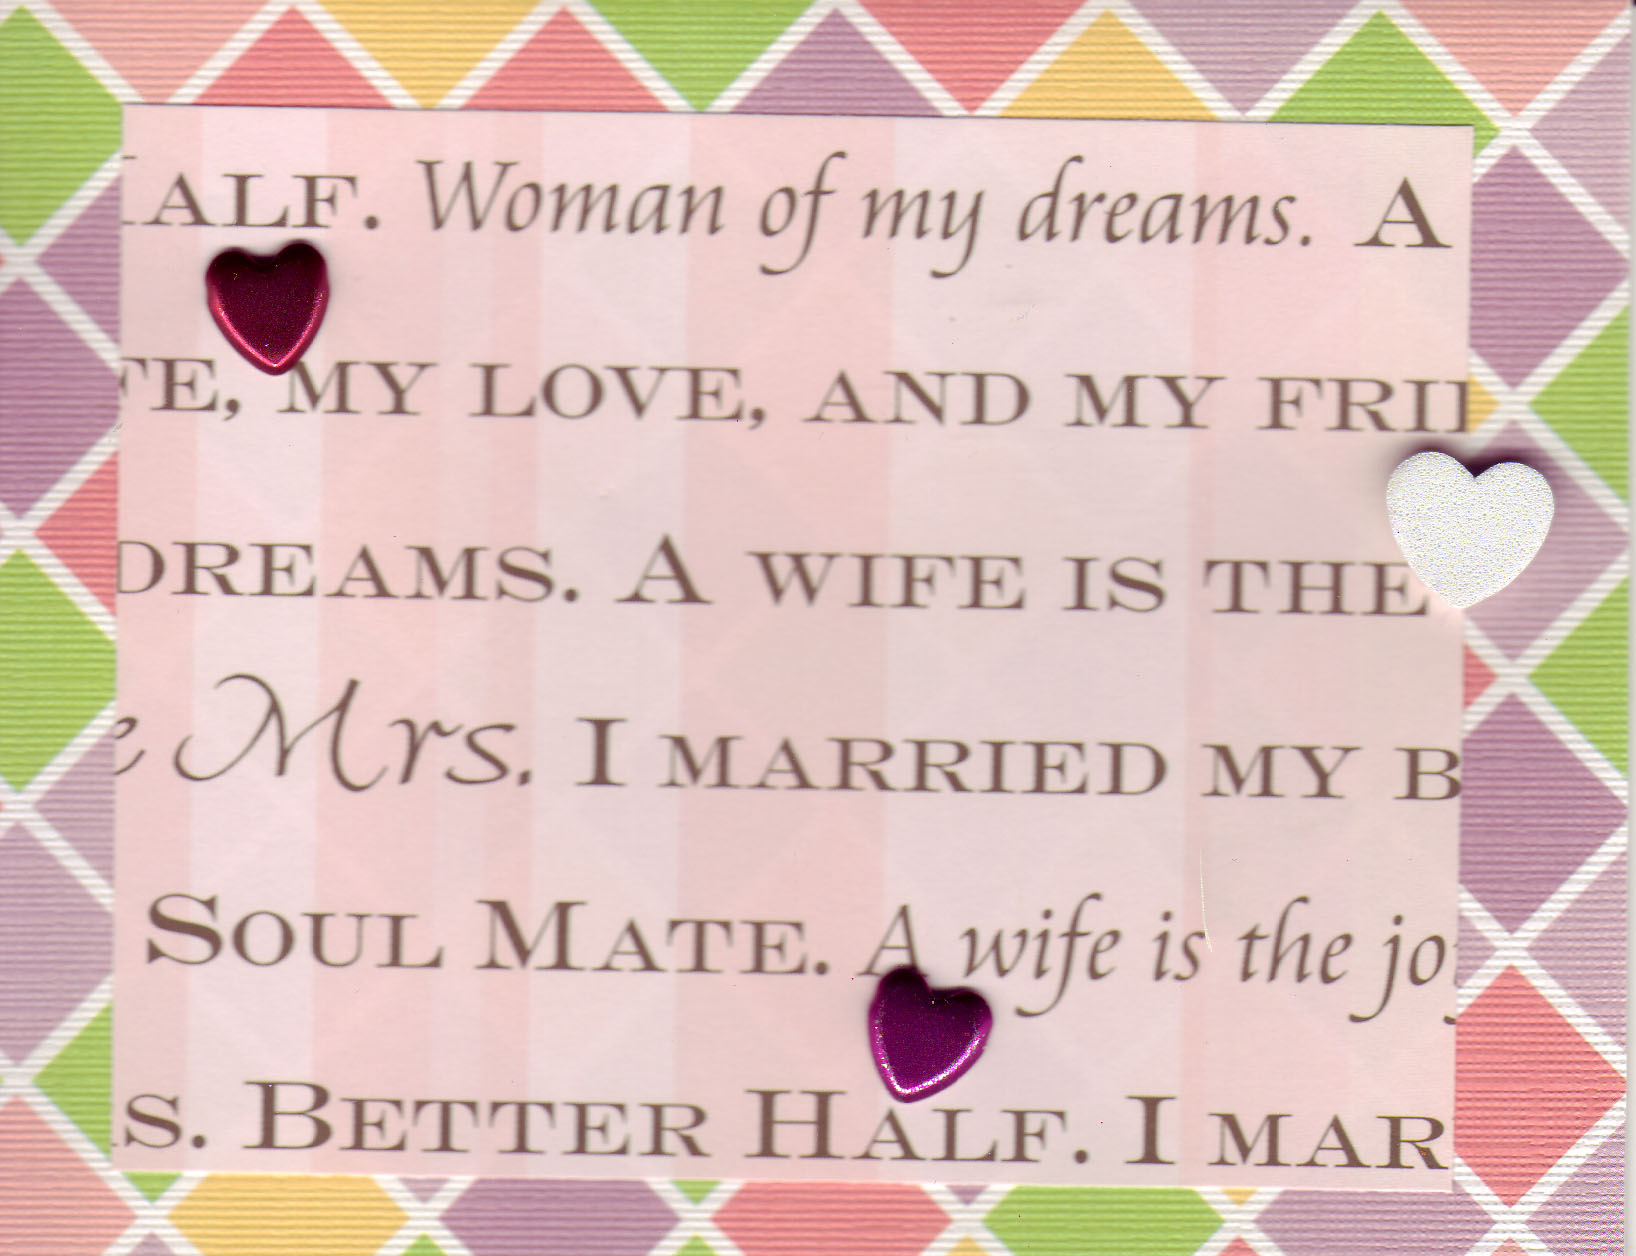 ALF. Woman of my dreams. A
FE, MY LOVE, AND MY FRI
DREAMS. A WIFE IS THE
e Mrs. I MARRIED MY B
SOUL MATE. A wife is the jo
S. BETTER HALF. I MAR